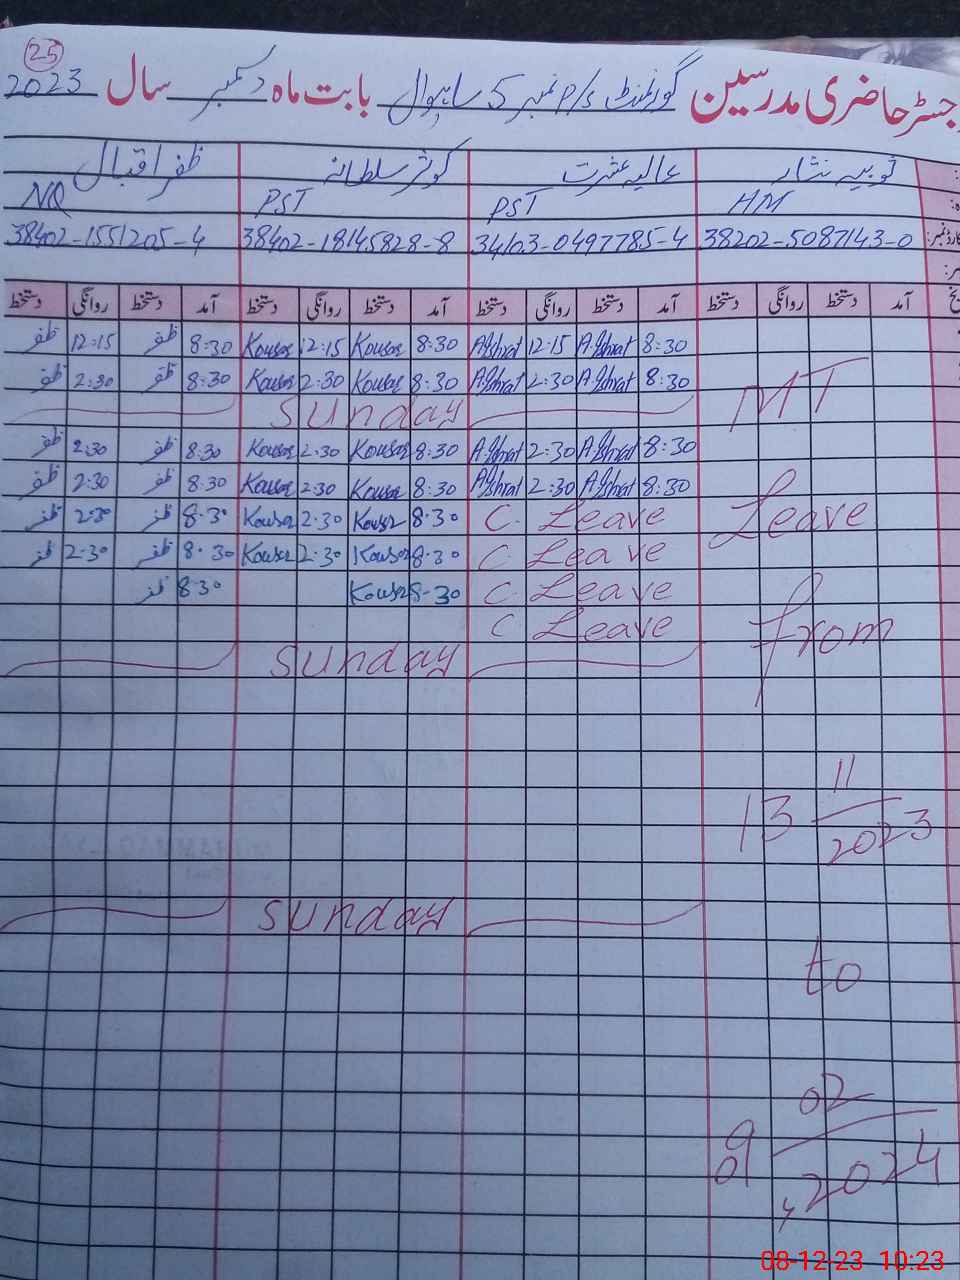 25
رجسٹر حاضری مدرسین گورنمنٹ P/S نمبر 5 ساہیوال بابت ماہ دسمبر سال 2023
ثوبیہ نثار عالیہ عشرت کوثر سلطانہ ظفر اقبال
HM PST PST NQ
38202-5087143-0 34103-0497785-4 38402-18145828-8 38402-1551205-4
آمد دستخط روانگی دستخط آمد دستخط روانگی دستخط آمد دستخط روانگی دستخط آمد دستخط روانگی دستخط
8:30 A.Ishrat 12:15 A.Ishrat 8:30 Kousar 12:15 Kousar 8:30 ظفر 12:15 ظفر
8:30 A.Ishrat 2:30 A.Ishrat 8:30 Kousar 2:30 Kousar 8:30 ظفر 2:30 ظفر
MT
Sunday
8:30 A.Ishrat 2:30 A.Ishrat 8:30 Kousar 2:30 Kousar 8:30 ظفر 2:30 ظفر
8:30 A.Ishrat 2:30 A.Ishrat 8:30 Kousar 2:30 Kousar 8:30 ظفر 2:30 ظفر
Leave
C. Leave 8:30 Kousar 2:30 Kousar 8:30 ظفر 2:30 ظفر
C. Leave 8:30 Kousar 2:30 Kousar 8:30 ظفر 2:30 ظفر
C. Leave 8:30 Kousar 8:30 ظفر
C Leave
from
Sunday
13 11/2023
Sunday
to
09 02/2024
08-12-23 10:23